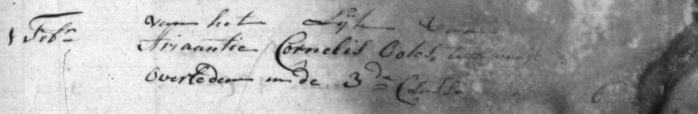 1 Febr van het Lijk van
Ariaantie Cornelis Bolos
overleden in de 3de Classe